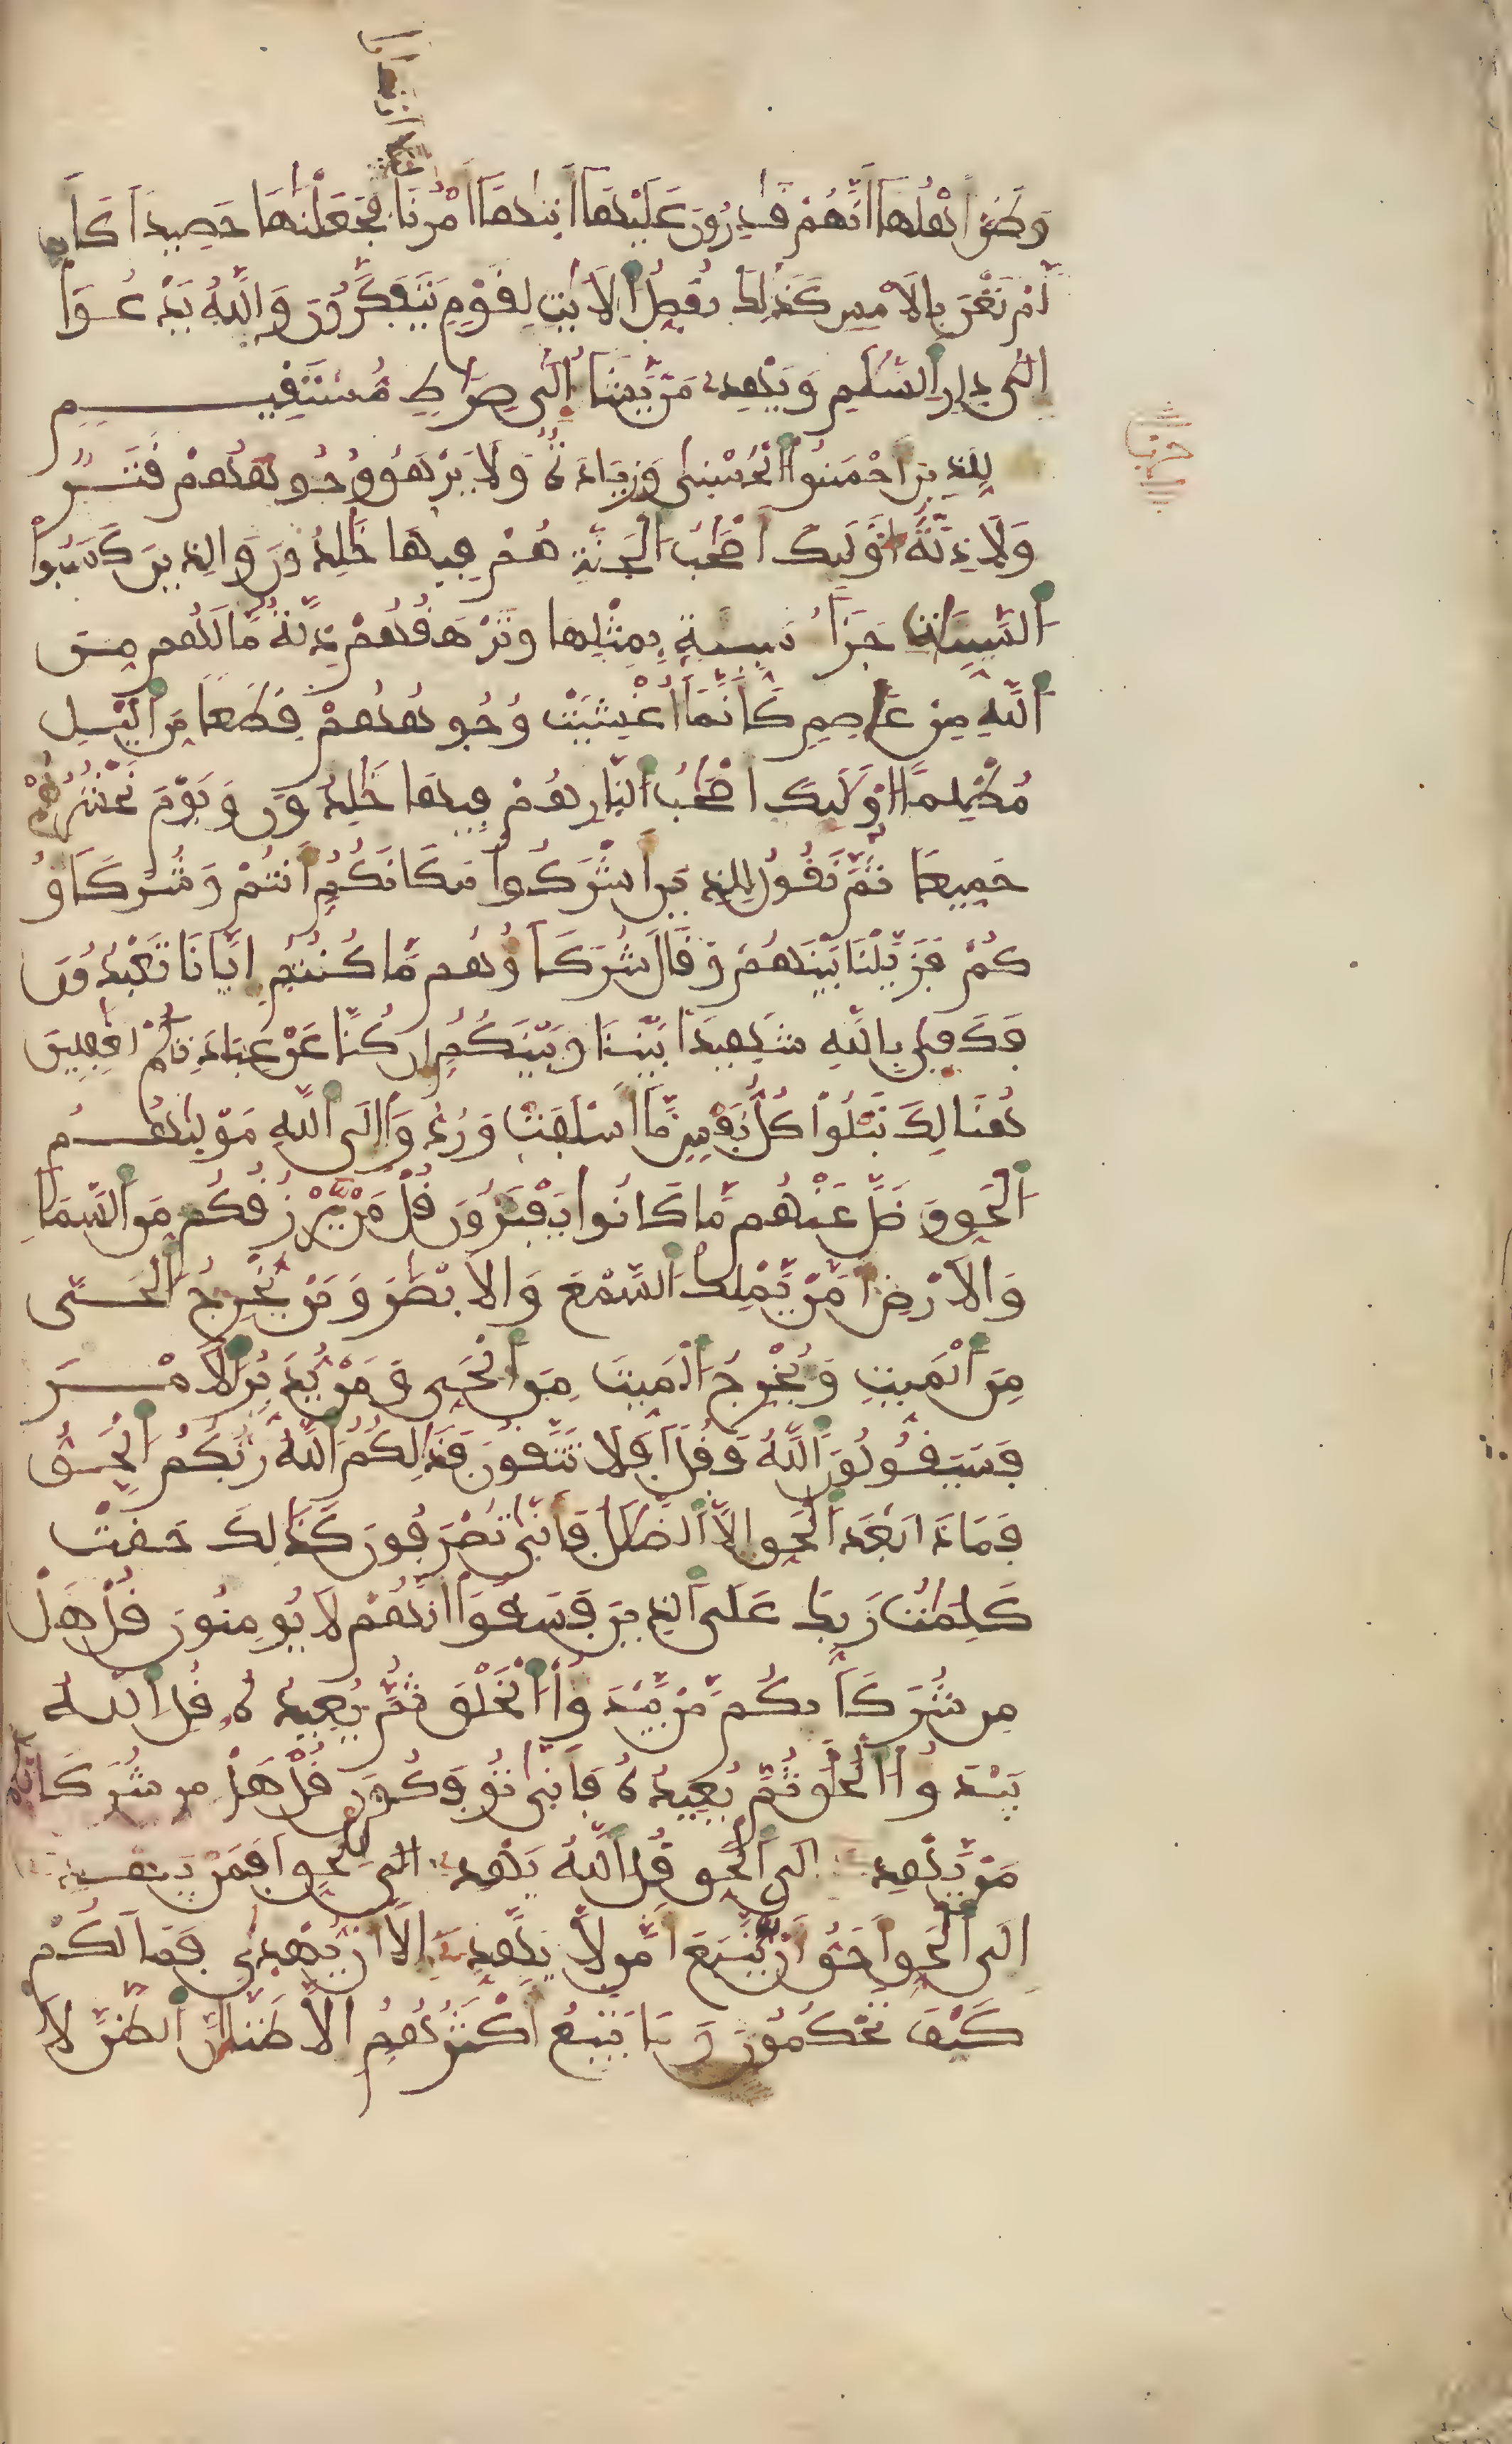 وَظَنَّ أَهْلُهَا أَنَّهُمْ قَٰدِرُونَ عَلَيْهَا أَتَىٰهَا أَمْرُنَا فَجَعَلْنَٰهَا حَصِيدًا كَأَن
لَّمْ تَغْنَ بِالَامْسِ كَذَٰلِكَ نُفَصِّلُ الَايَٰتِ لِقَوْمٍ يَتَفَكَّرُونَ وَاللَّهُ يَدْعُوا
إِلَىٰ دَارِ السَّلَٰمِ وَيَهْدِى مَنْ يَّشَاءُ إِلَىٰ صِرَٰطٍ مُّسْتَقِيمٍ
لِلذِينَ أَحْسَنُوا الْحُسْنَىٰ وَزِيَادَةٌ وَلَا يَرْهَقُ وُجُوهَهُمْ قَتَرٌ
وَلَا ذِلَّةٌ أُوْلَٰئِكَ أَصْحَٰبُ الْجَنَّةِ هُمْ فِيهَا خَٰلِدُونَ وَالذِينَ كَسَبُوا
السَّيِّـَٔاتِ جَزَاءُ سَيِّئَةٍ بِمِثْلِهَا وَتَرْهَقُهُمْ ذِلَّةٌ مَّا لَهُم مِّنَ
اللَّهِ مِنْ عَاصِمٍ كَأَنَّمَا أُغْشِيَتْ وُجُوهُهُمْ قِطَعًا مِّنَ الَّيْلِ
مُظْلِمًا أُوْلَٰئِكَ أَصْحَٰبُ النَّارِ هُمْ فِيهَا خَٰلِدُونَ وَيَوْمَ نَحْشُرُهُمْ
جَمِيعًا ثُمَّ نَقُولُ لِلذِينَ أَشْرَكُوا مَكَانَكُمْ أَنتُمْ وَشُرَكَاؤُ
كُمْ فَزَيَّلْنَا بَيْنَهُمْ وَقَالَ شُرَكَاؤُهُم مَّا كُنتُمْ إِيَّانَا تَعْبُدُونَ
فَكَفَىٰ بِاللَّهِ شَهِيدًا بَيْنَنَا وَبَيْنَكُمْ إِن كُنَّا عَنْ عِبَادَتِكُمْ لَغَٰفِلِينَ
هُنَالِكَ تَبْلُوا كُلُّ نَفْسٍ مَّا أَسْلَفَتْ وَرُدُّوا إِلَى اللَّهِ مَوْلَىٰهُمُ
الْحَقِّ وَضَلَّ عَنْهُم مَّا كَانُوا يَفْتَرُونَ قُلْ مَنْ يَّرْزُقُكُم مِّنَ السَّمَاءِ
وَالَارْضِ أَمَّنْ يَّمْلِكُ السَّمْعَ وَالَابْصَٰرَ وَمَنْ يُّخْرِجُ الْحَيَّ
مِنَ الْمَيِّتِ وَيُخْرِجُ الْمَيِّتَ مِنَ الْحَيِّ وَمَنْ يُّدَبِّرُ الَامْرَ
فَسَيَقُولُونَ اللَّهُ فَقُلْ أَفَلَا تَتَّقُونَ فَذَٰلِكُمُ اللَّهُ رَبُّكُمُ الْحَقُّ
فَمَاذَا بَعْدَ الْحَقِّ إِلَّا الضَّلَٰلُ فَأَنَّىٰ تُصْرَفُونَ كَذَٰلِكَ حَقَّتْ
كَلِمَٰتُ رَبِّكَ عَلَى الذِينَ فَسَقُوا أَنَّهُمْ لَا يُومِنُونَ قُلْ هَلْ
مِن شُرَكَائِكُم مَّنْ يَّبْدَؤُا الْخَلْقَ ثُمَّ يُعِيدُهُ قُلِ اللَّهُ
يَبْدَؤُا الْخَلْقَ ثُمَّ يُعِيدُهُ فَأَنَّىٰ تُوفَكُونَ قُلْ هَلْ مِن شُرَكَائِكُم
مَّنْ يَّهْدِى إِلَى الْحَقِّ قُلِ اللَّهُ يَهْدِى لِلْحَقِّ أَفَمَنْ يَّهْدِى
إِلَى الْحَقِّ أَحَقُّ أَنْ يُّتَّبَعَ أَمَّن لَّا يَهَدِّى إِلَّا أَنْ يُّهْدَىٰ فَمَا لَكُمْ
كَيْفَ تَحْكُمُونَ وَمَا يَتَّبِعُ أَكْثَرُهُمْ إِلَّا ظَنًّا إِنَّ الظَّنَّ لَا
حزب